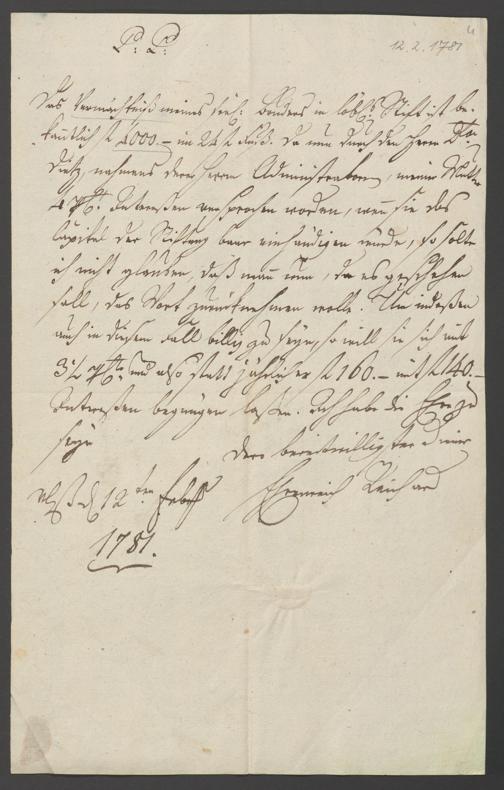 P: P:
12.2.1781
Das Vermächtniß meines seel: Bruders in löbl. Stift ist be-
kanntlich f 4000.- im 24 f Fuß. Da nun durch den Herrn Dr.
Dietz, nahmens derer Herrn Administratorn, meiner Mutter
4 p Ct. Interessen versprochen worden, wenn sie das
Capital der Stiftung baar einhändigen würde, so solte
ich nicht glauben, daß man nun, da es geschehen
soll, das Wort zurücknehmen wolle. Um indessen
auch in diesem Fall billig zu seyn, so will sie sich mit
3½ p Ct. und also statt jährlicher f 160.- mit f 140.-
Interessen begnügen lassen. Ich habe die Ehre zu
seyn
Dero bereitwilligster Diener
d 12ten Febr
Ehrenreich
1781.